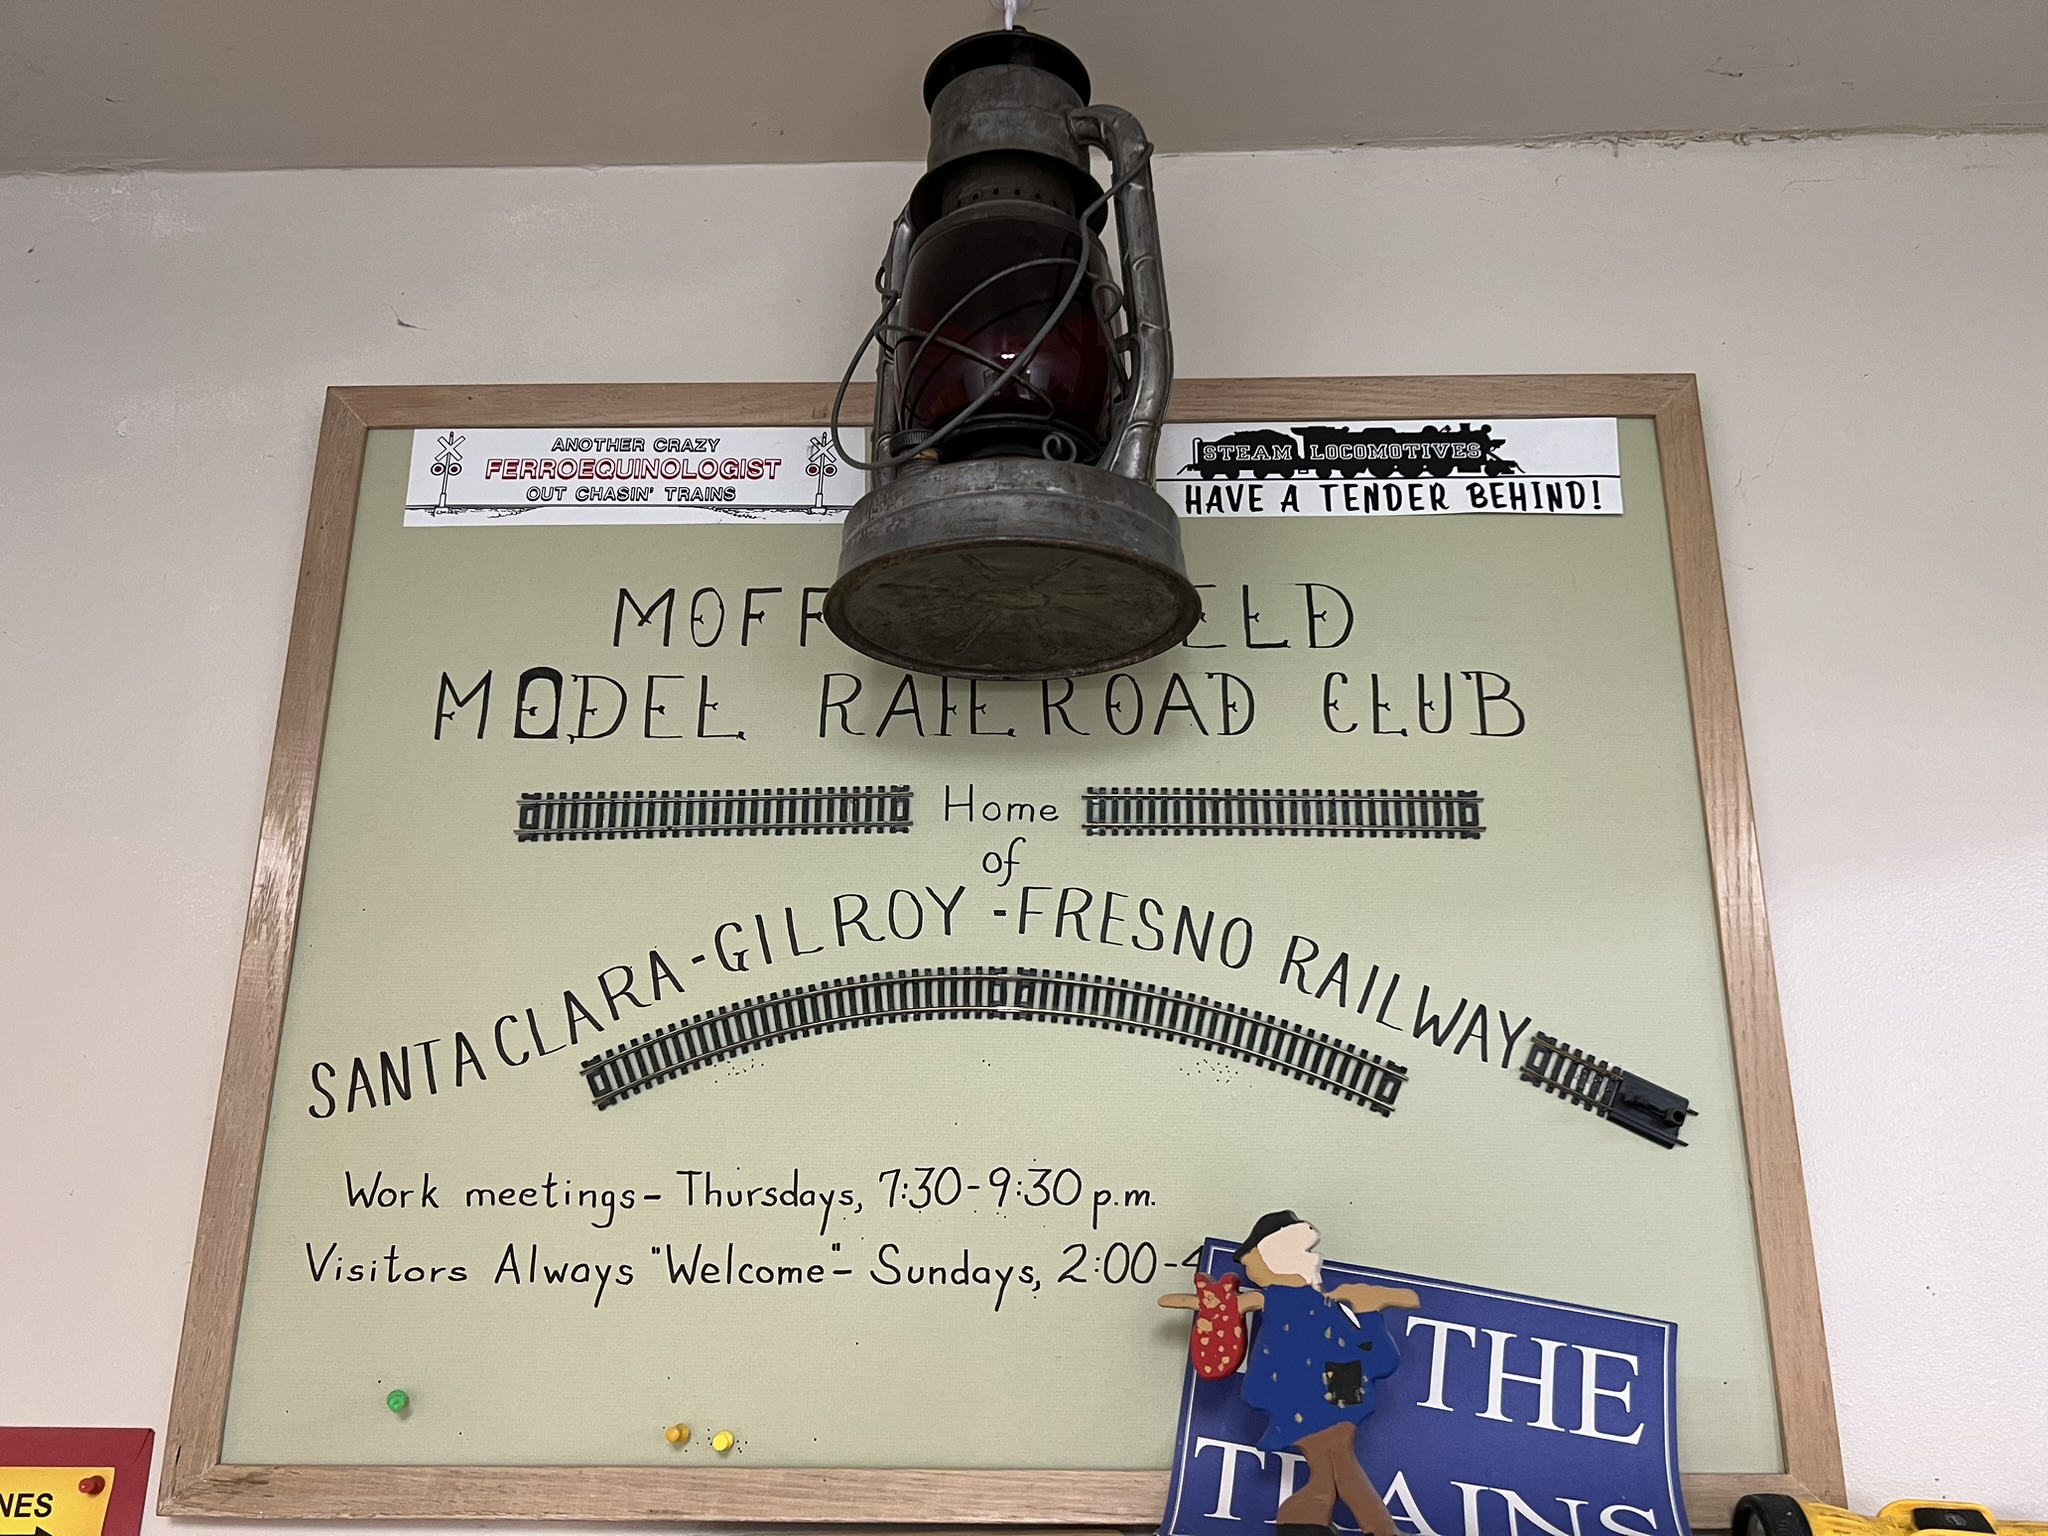 ANOTHER CRAZY
FERROEQUINOLOGIST
OUT CHASIN' TRAINS
STEAM LOCOMOTIVES
HAVE A TENDER BEHIND!
MODEL RAILROAD CLUB
Home
of
SANTA CLARA-GILROY-FRESNO RAILWAY
Work meetings- Thursdays, 7:30-9:30 p.m.
Visitors Always "Welcome"- Sundays, 2:00-
THE
TRAINS